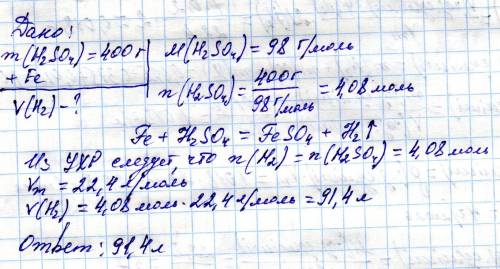 Дано:
m(H₂SO₄)=400г
+ Fe
V(H₂)-?
M(H₂SO₄)=98 г/моль
n(H₂SO₄)= 400г / 98 г/моль = 4,08 моль
Fe + H₂SO₄ = FeSO₄ + H₂↑
Из УХР следует, что n(H₂) = n(H₂SO₄) = 4,08 моль
Vm = 22,4 л/моль
V(H₂) = 4,08 моль · 22,4 л/моль = 91,4 л
Ответ: 91,4 л